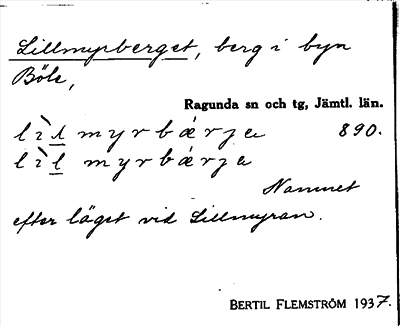 Lillmyrberget, berg i byn
Böle,
Ragunda sn och tg, Jämtl. län.
lìl myrbærja 890.
lìl myrbærja
Namnet
efter läget vid Lillmyran.
BERTIL FLEMSTRÖM 1937.